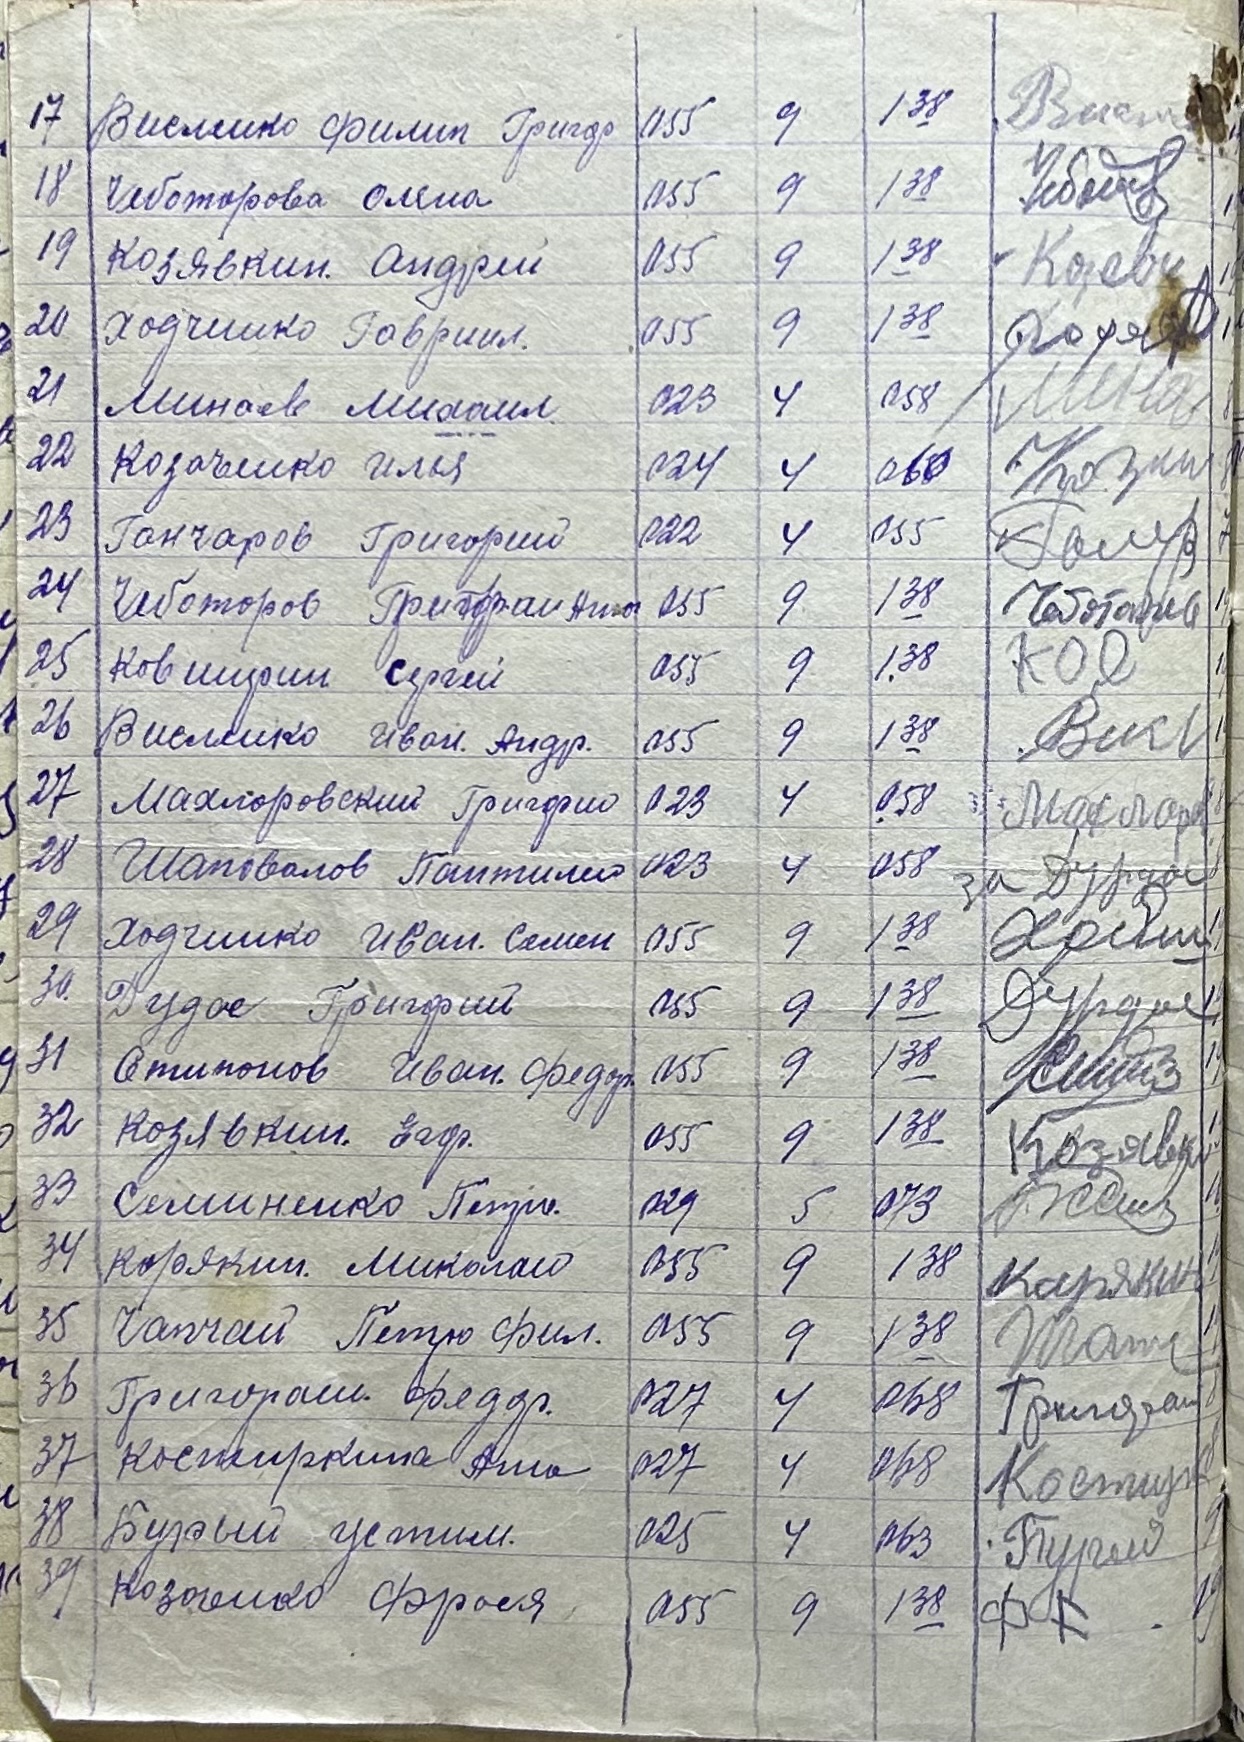 17 Висленко Филип Григор 055 9 138
18 Чеботорова Олена 055 9 138
19 Козявкин. Андрей 055 9 138
20 Ходченко Гавриил. 055 9 138
21 Минаев Михаил 023 4 058 Мина
22 Козаченко Илья 024 4 060
23 Ганчаров Григорий 022 4 055
24 Чеботоров Григорий 055 9 138 Чеботарев
25 Сергей 055 9 138 КОВ
26 Висленко Иван. Андр. 055 9 138 Висл
27 Махлоровский Григорий 023 4 058 Махлоро
28 Шаповалов Пантилей 023 4 058 за Дурдас
29 Ходченко Иван. Семен 055 9 138
30. Дудас Григорий 055 9 138 Дурдас
31 Стипонов Иван. Федор. 055 9 138
32 Козявкин. Егор. 055 9 138 Козявки
33 Семиненко Петро. 029 5 073
34 Корякин. Миколай 055 9 138 Карякин
35 Чапчай Петро Фил. 055 9 138
36 Григораш. Федор. 027 4 068 Григораш
37 Костыркина Анна 027 4 068 Костыр
38 Бурый Устим. 025 4 063
39 Козоченко Фрося 055 9 138 ФК